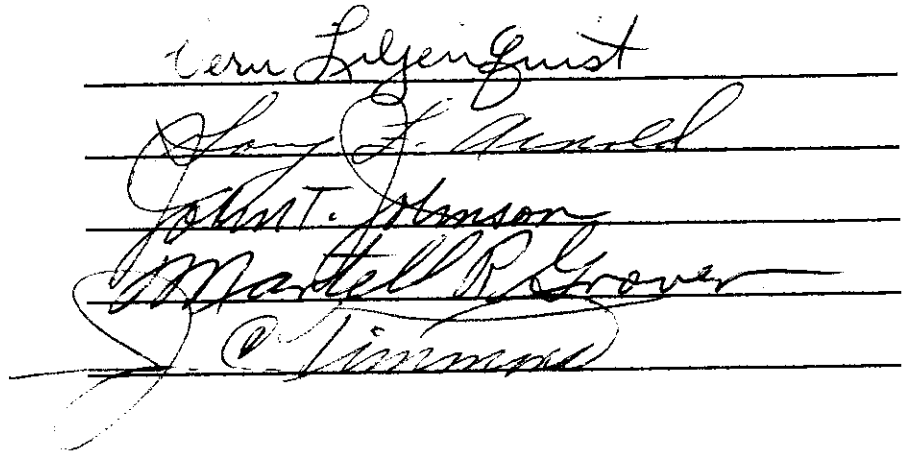 Vern LiljenQuist
Gary L. Arnold
John T. Johnson
Martell R. Grover
J. C. Timmons